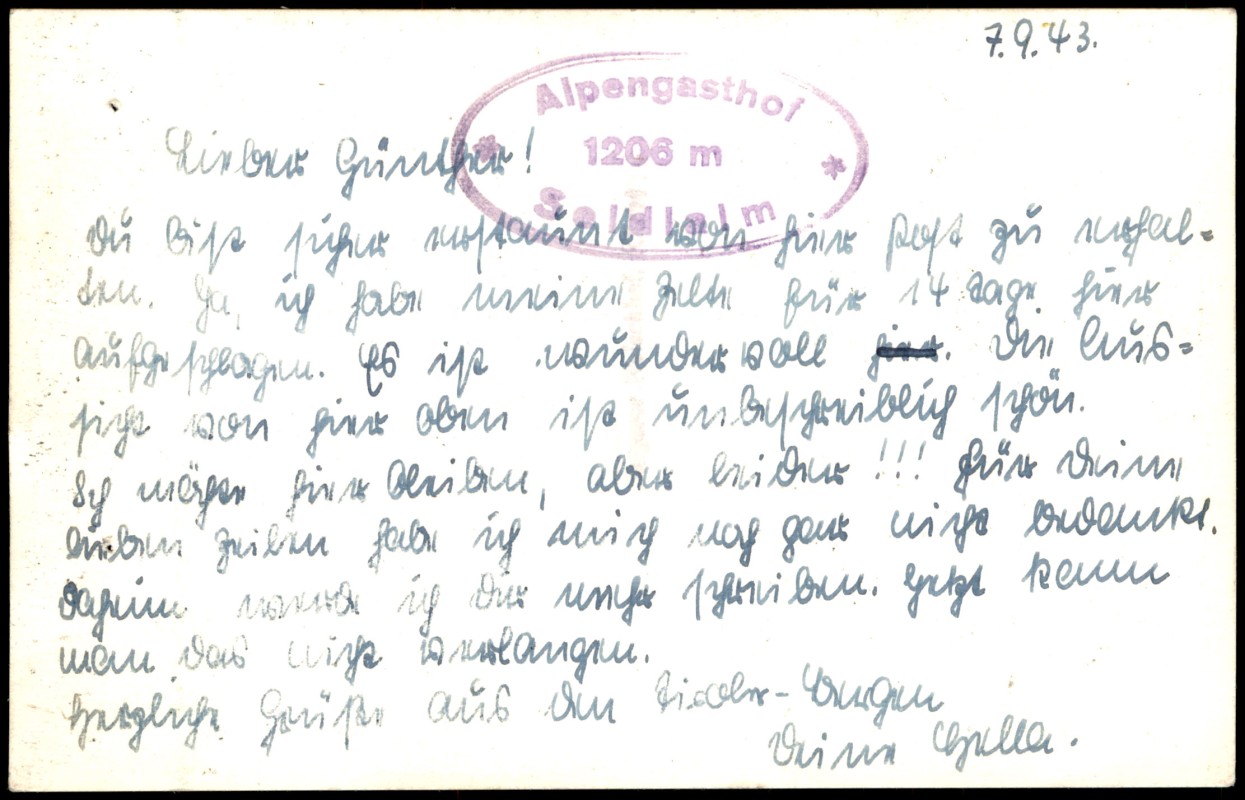 7.9.43.
Alpengasthof
1206 m
Seldlalm
Lieber Günther!
Du bist sicher erstaunt von hier Post zu erhal=
ten. Ja, ich habe meine Zelte für 14 Tage hier
aufgeschlagen. Es ist wundervoll hier. Die Aus=
sicht von hier oben ist unbeschreiblich schön.
Ich möchte hier bleiben, aber leider!!! Für Deine
lieben Zeilen habe ich mich noch gar nicht bedankt.
Daheim werde ich Dir mehr schreiben. Jetzt kann
man das nicht verlangen.
Herzliche Grüße aus den Tiroler-Bergen
Deine Hella.